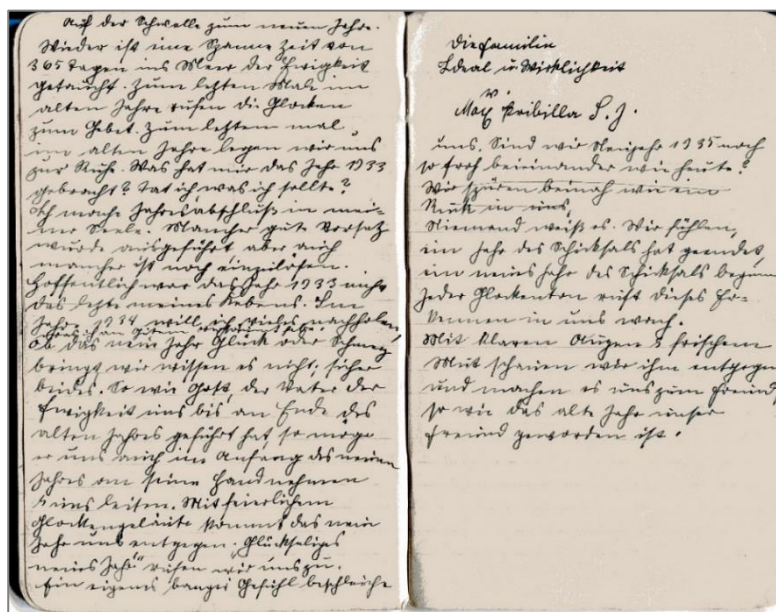 Auf der Schwelle zum neuen Jahre.
Wieder ist eine Spanne Zeit von
365 Tagen ins Meer der Ewigkeit
getaucht. Zum letzten Male im
alten Jahre rufen die Glocken
zum Gebet. Zum letztem mal
im alten Jahre legen wir uns
zur Ruhe. Was hat mir das Jahr 1933
gebracht? Tat ich was ich sollte?
Ich mache Jahresabschluß in mei-
ner Seele. Mancher gute Vorsatz
wurde ausgeführt aber auch
mancher ist noch einzulösen.
Hoffentlich war das Jahr 1933 nicht
das letzte meines Lebens. Im
Jahre 1934 will ich vieles nachholen,
was ich am Guten versäumt habe.
Ob das neue Jahr Glück oder Schmerz
bringt wir wissen es nicht; sicher
beides. So wie Gott, der Vater der
Ewigkeit uns bis an Ende des
alten Jahres geführt hat so möge
er uns auch im Anfang des neuen
Jahres an seine Hand nehmen
& uns leiten. Mit feierlichem
Glockengeläute kommt das neue
Jahr uns entgegen. "Glückseliges
neues Jahr" rufen wir uns zu.
Ein eigenes banges Gefühl beschleicht
Die Familie
Ideal u. Wirklichkeit
v.
Max Pribilla S. J.
uns. Sind wir Neujahr 1935 noch
so froh beieinander wie heute?
Wir spüren beinah wie ein
Ruck in uns,
Niemand weiß es. Wir fühlen,
ein Jahr des Schicksals hat geendet,
ein neues Jahr des Schicksals begann
Jeder Glockenton ruft dieses Er-
kennen in uns wach.
Mit klaren Augen & frischem
Mut schauen wir ihm entgegen
und machen es uns zum Freund,
so wie das alte Jahr unser
Freund geworden ist.